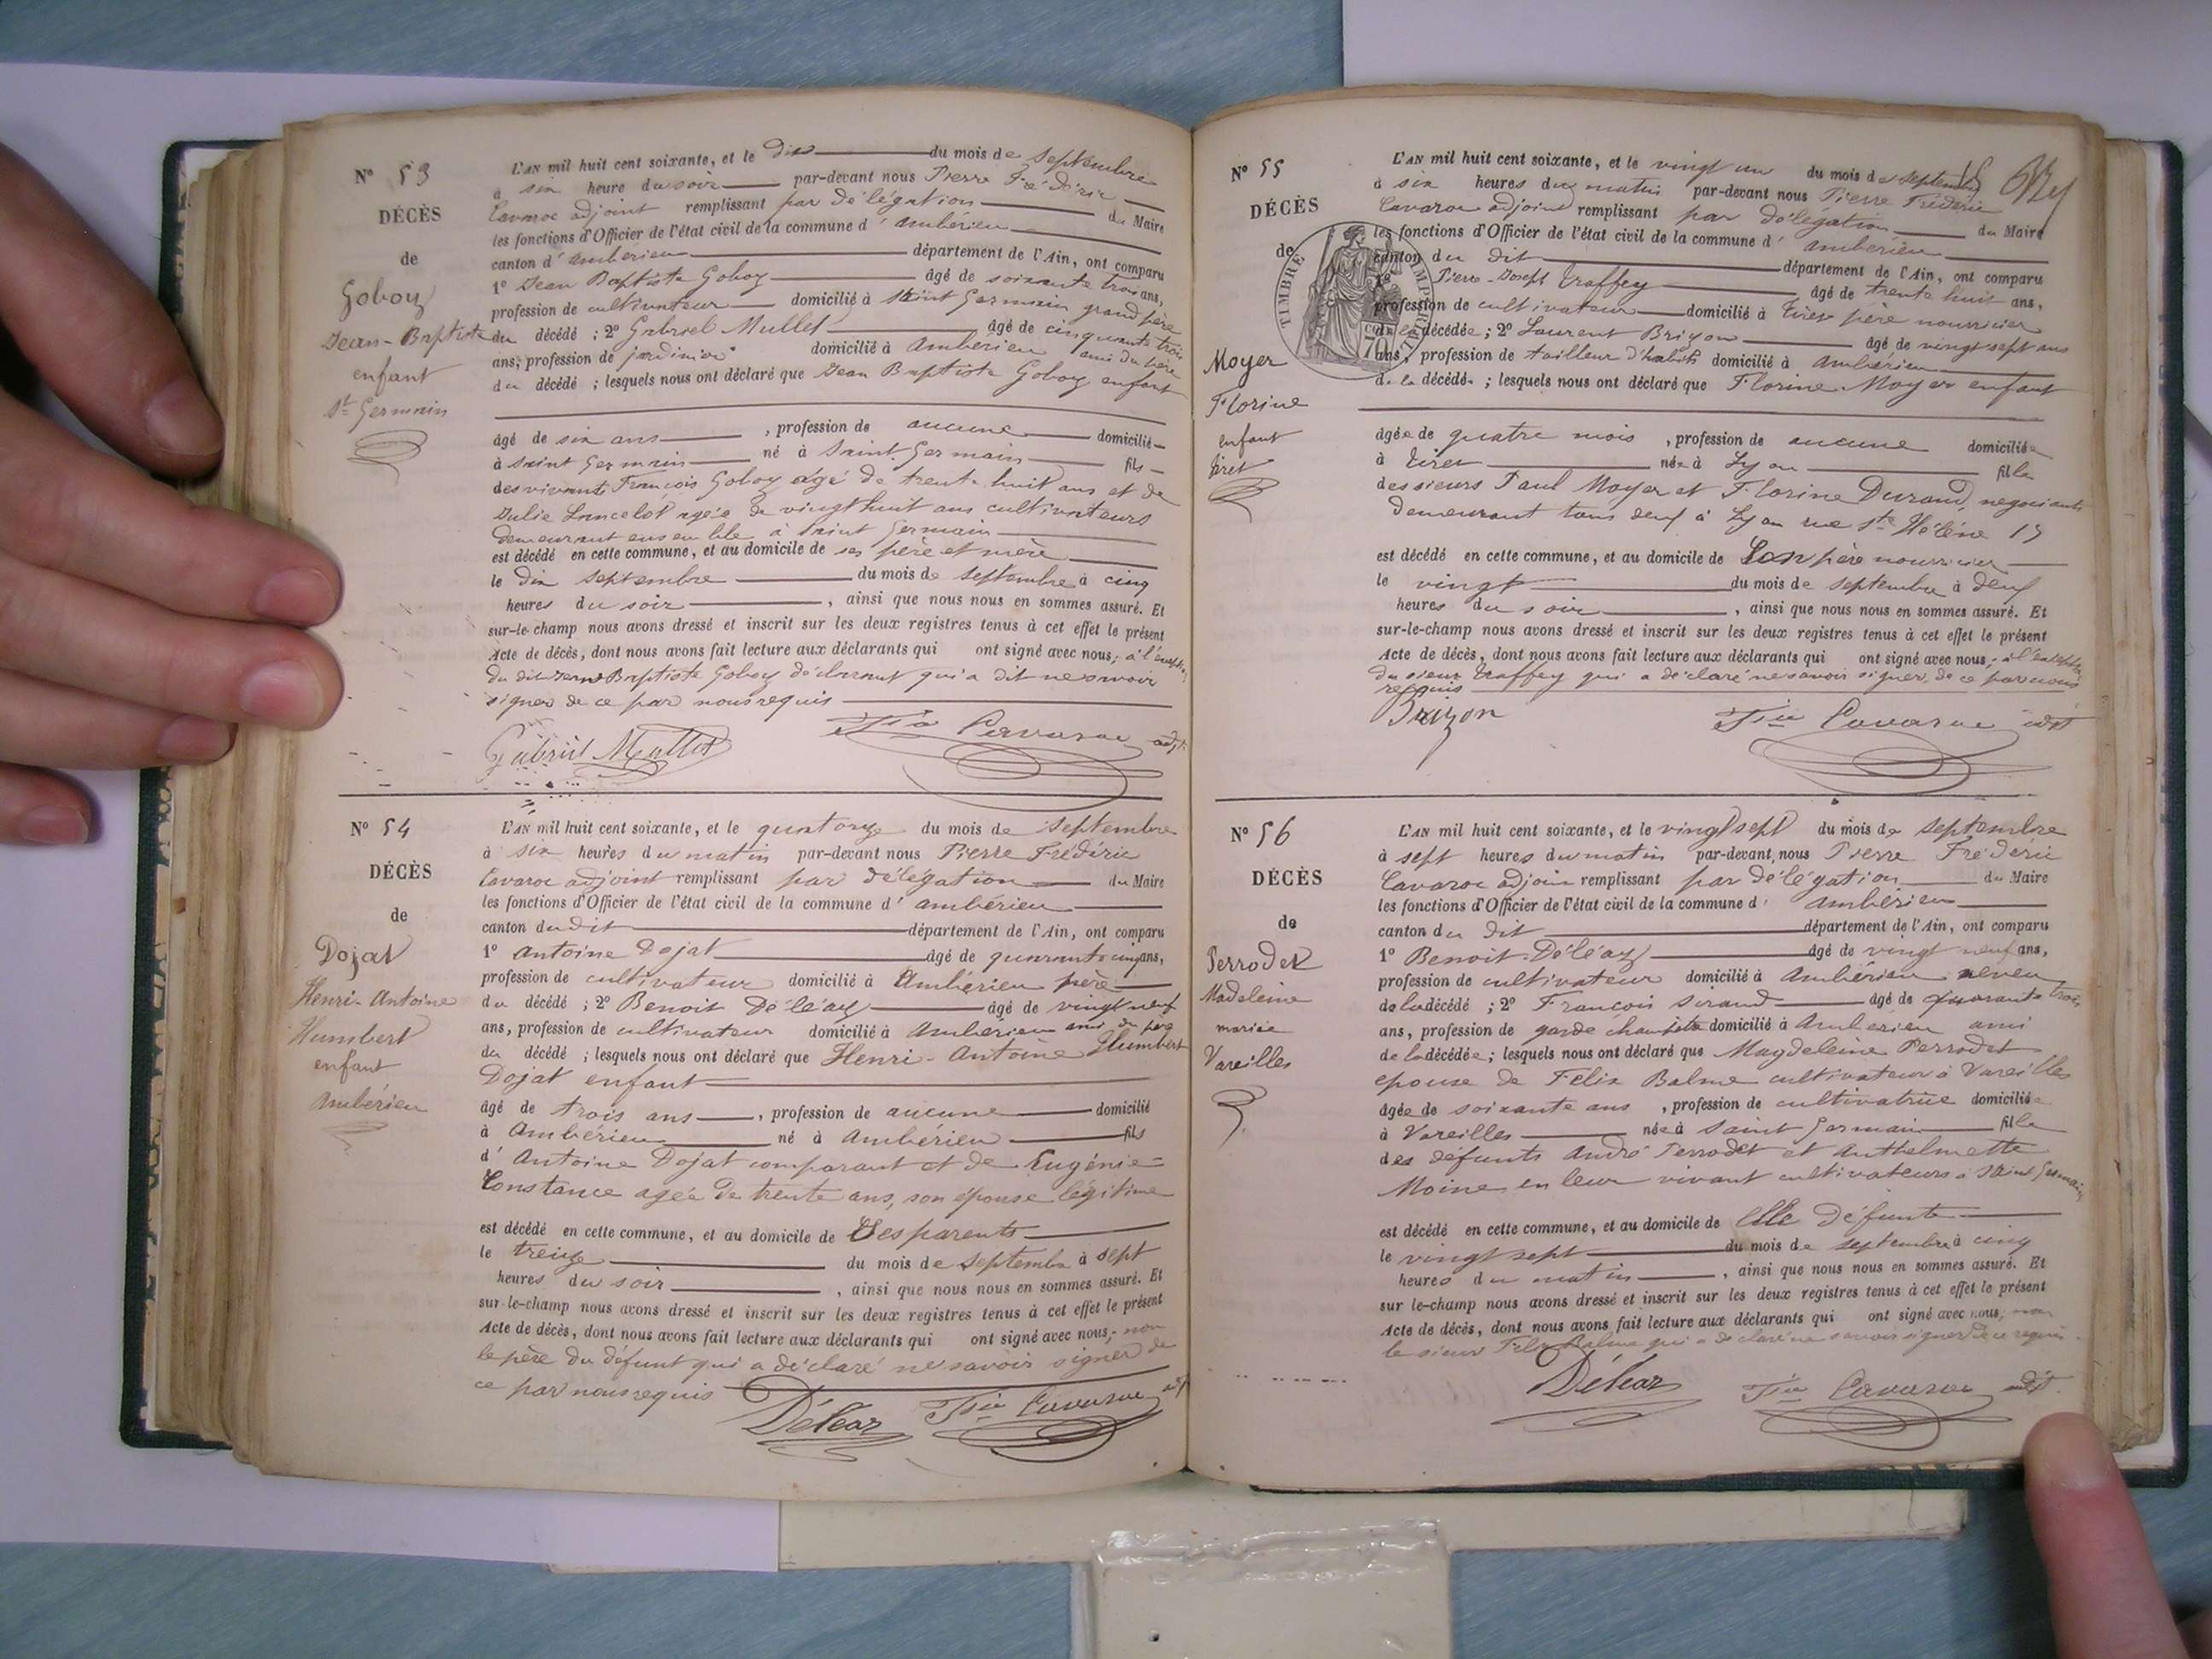 N° 53
DÉCÈS
de
Goboz
Jean-Baptiste
enfant
St Germain
L'AN mil huit cent soixante, et le dix du mois de septembre
à six heure du soir par-devant nous Pierre Frédéric
Cavaroc adjoint remplissant par délégation du Maire
les fonctions d'Officier de l'état civil de la commune d'ambérieu
canton d'ambérieu département de l'Ain, ont comparu
1° Jean Baptiste Goboz âgé de soixante trois ans,
profession de cultivateur domicilié à Saint Germain grand père
du décédé ; 2° Gabriel Mullet âgé de cinquante trois
ans, profession de jardinier domicilié à Ambérieu ami du père
du décédé ; lesquels nous ont déclaré que Jean Baptiste Goboz enfant
âgé de six ans, profession de aucune domicilié
à Saint Germain né à Saint Germain fils
des vivants François Goboz âgé de trente huit ans et de
Julie Lancelot agée de vingt huit ans cultivateurs
demeurant ensemble à Saint Germain
est décédé en cette commune, et au domicile de ses père et mère
le dix septembre du mois de septembre à cinq
heures du soir, ainsi que nous nous en sommes assuré. Et
sur-le-champ nous avons dressé et inscrit sur les deux registres tenus à cet effet le présent
Acte de décès, dont nous avons fait lecture aux déclarants qui ont signé avec nous, à l'exception
du dit Jean Baptiste Goboz déclarant qui a dit ne savoir
signer de ce par nous requis
Gabriel Mullet Fic Cavaroc adjt
N° 54
DÉCÈS
de
Dojat
Henri-Antoine
Humbert
enfant
Ambérieu
L'AN mil huit cent soixante, et le quatorze du mois de Septembre
à six heures du matin par-devant nous Pierre Frédéric
Cavaroc adjoint remplissant par délégation du Maire
les fonctions d'Officier de l'état civil de la commune d'ambérieu
canton du dit département de l'Ain, ont comparu
1° Antoine Dojat âgé de quarante cinq ans,
profession de cultivateur domicilié à Ambérieu père
du décédé ; 2° Benoit Déléaz âgé de vingt neuf
ans, profession de cultivateur domicilié à Ambérieu ami du père
du décédé ; lesquels nous ont déclaré que Henri-Antoine Humbert
Dojat enfant
âgé de trois ans, profession de aucune domicilié
à Ambérieu né à Ambérieu fils
d'Antoine Dojat comparant et de Eugénie
Constance agée de trente ans, son épouse légitime
est décédé en cette commune, et au domicile de Ses parents
le treize du mois de septembre à sept
heures du soir, ainsi que nous nous en sommes assuré. Et
sur-le-champ nous avons dressé et inscrit sur les deux registres tenus à cet effet le présent
Acte de décès, dont nous avons fait lecture aux déclarants qui ont signé avec nous, non
le père du défunt qui a déclaré ne savoir signer de
ce par nous requis
Déléaz Fic Cavaroc adjt
N° 55
DÉCÈS
de
TIMBRE IMPÉRIAL
Moyer
Florine
enfant
tiret
L'AN mil huit cent soixante, et le vingt un du mois de septembre
à six heures du matin par-devant nous Pierre Frédéric
Cavaroc adjoint remplissant par délégation du Maire
les fonctions d'Officier de l'état civil de la commune d'ambérieu
canton du dit département de l'Ain, ont comparu
1° Pierre-Joseph Traffey âgé de trente huit ans,
profession de cultivateur domicilié à tiret père nourricier
de la décédée ; 2° Laurent Brizon âgé de vingt sept ans
ans, profession de tailleur d'habits domicilié à Ambérieu
de la décédée ; lesquels nous ont déclaré que Florine Moyer enfant
âgée de quatre mois, profession de aucune domiciliée
à tiret née à Lyon fille
des sieurs Paul Moyer et Florine Durand, negociants
demeurant tous deux à Lyon rue Ste Hélène 13
est décédé en cette commune, et au domicile de Son père nourricier
le vingt du mois de septembre à deux
heures du soir, ainsi que nous nous en sommes assuré. Et
sur-le-champ nous avons dressé et inscrit sur les deux registres tenus à cet effet le présent
Acte de décès, dont nous avons fait lecture aux déclarants qui ont signé avec nous, à l'exception
du sieur traffey qui a déclaré ne savoir signer, de ce par nous
requis
Brizon Fic Cavaroc adjt
N° 56
DÉCÈS
de
Perrodet
Madeleine
mariée
Vareilles
L'AN mil huit cent soixante, et le vingt sept du mois de septembre
à sept heures du matin par-devant nous Pierre Frédéric
Cavaroc adjoint remplissant par délégation du Maire
les fonctions d'Officier de l'état civil de la commune d'ambérieu
canton du dit département de l'Ain, ont comparu
1° Benoit Déléaz âgé de vingt neuf ans,
profession de cultivateur domicilié à Ambérieu neveu
de la décédé ; 2° François Sirand âgé de quarante trois
ans, profession de garde champêtre domicilié à Ambérieu ami
de la décédée ; lesquels nous ont déclaré que Magdeleine Perrodet
epouse de Félix Balme cultivateur à Vareilles
âgée de soixante ans, profession de cultivatrice domiciliée
à Vareilles née à Saint Germain fille
des défunts André Perrodet et Anthelmette
Moine, en leur vivant cultivateurs à Saint Germain
est décédé en cette commune, et au domicile de Elle défunte
le vingt sept du mois de septembre à cinq
heures du matin, ainsi que nous nous en sommes assuré. Et
sur le-champ nous avons dressé et inscrit sur les deux registres tenus à cet effet le présent
Acte de décès, dont nous avons fait lecture aux déclarants qui ont signé avec nous, non
le sieur Félix Balme qui a déclaré ne savoir signer de ce requis
Déléaz Fic Cavaroc adjt